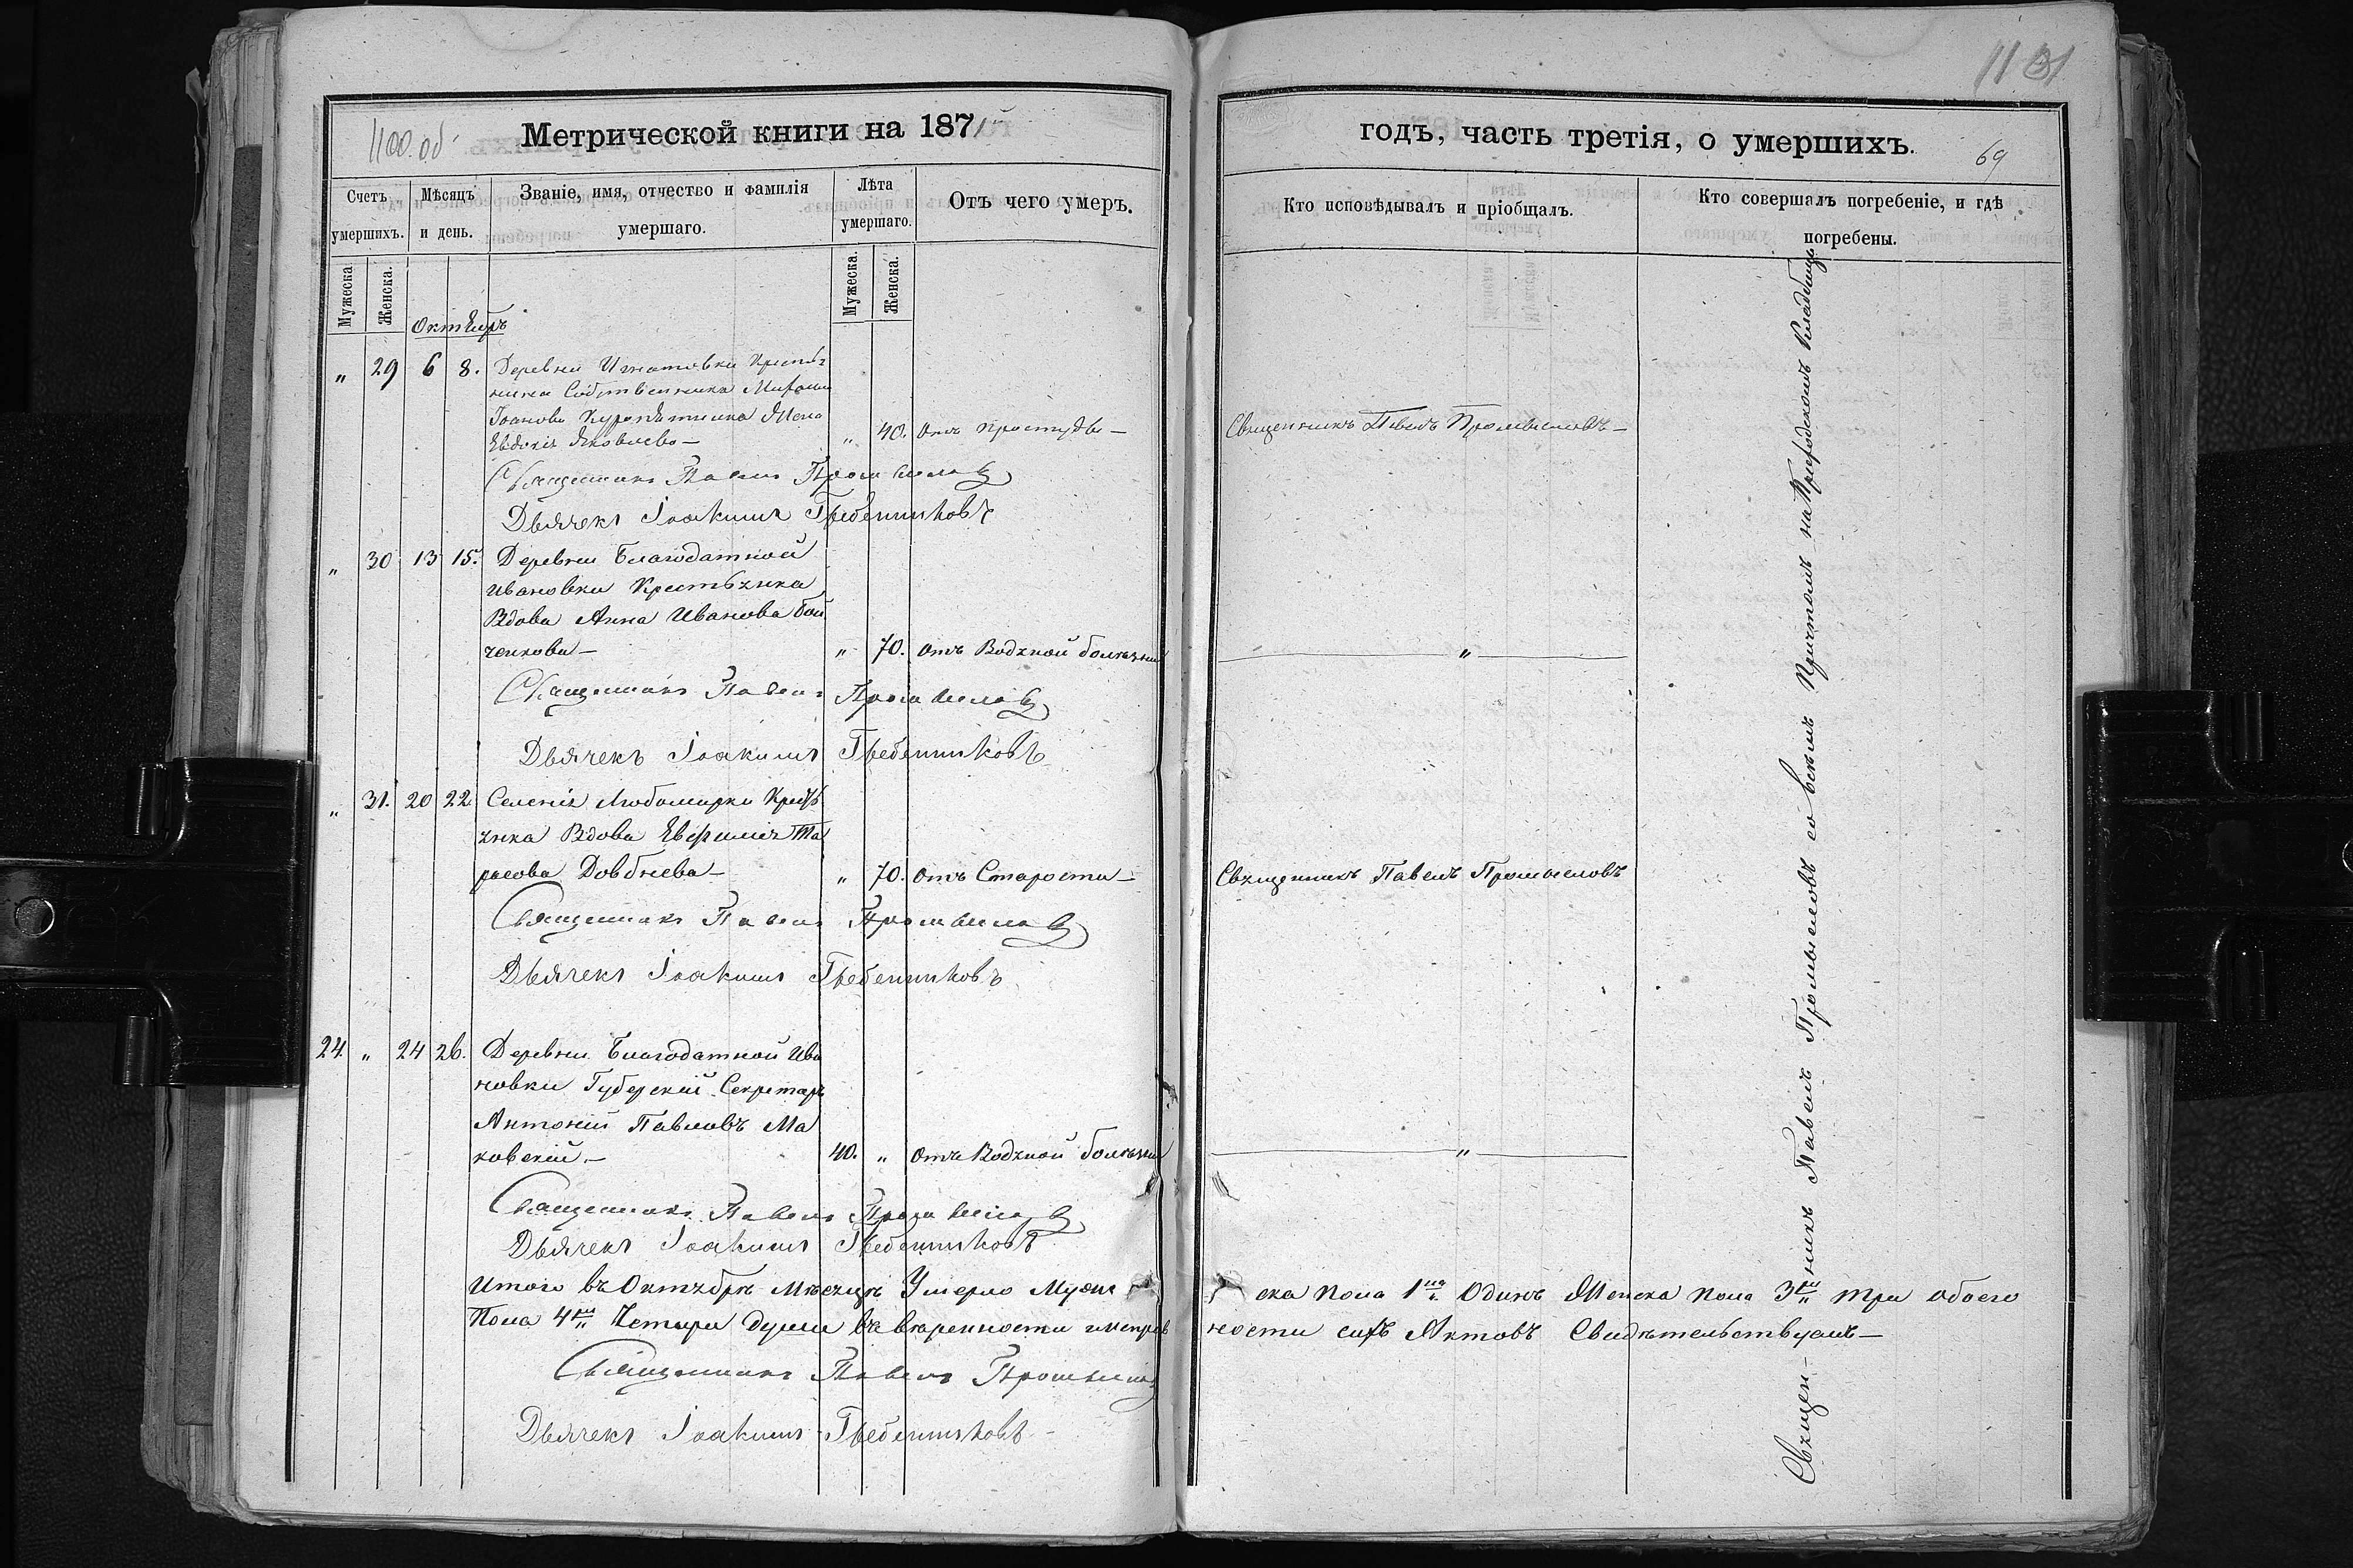 1100.об
Метрической книги на 1871
Счетъ умершихъ.
Мѣсяцъ и день.
Званіе, имя, отчество и фамилія умершаго.
Лѣта умершаго.
Отъ чего умеръ.
Мужеска.
Женска.
Мужеска.
Женска.
Октябрь
„ 29 6 8. Деревни Игнатовки Крестья
нина Собственника
Іоанова Жена
Евдокія Яковлева — „ 40. Отъ простуды —
Священникъ Павелъ Промысловъ
Дьячекъ Іоакимъ Гребенниковъ
„ 30 13 15. Деревни Благодатной
Ивановки Крестьянка
Вдова Анна Иванова Бой
ченкова — „ 70. Отъ Водяной болѣзни
Священникъ Павелъ Промысловъ
Дьячекъ Іоакимъ Гребенниковъ
„ 31. 20 22 Селенія Любомирки Кресть
янка Вдова Евфимія Та
расова Довбнева — „ 70. Отъ Старости —
Священникъ Павелъ Промысловъ
Дьячекъ Іоакимъ Гребенниковъ
24. „ 24 26. Деревни Благодатной Ива
новки Губерскій Секретарь
Антоній Павловъ Ма
ковскій. — 40. „ Отъ Водяной болѣзни
Священникъ Павелъ Промысловъ
Дьячекъ Іоакимъ Гребенниковъ
Итого въ Октябрѣ Мѣсяцѣ Умерло Муже
Пола 4 Четыри души въ вѣренности
Священникъ Павелъ Промысловъ
Дьячекъ Іоакимъ Гребенниковъ
1131
годъ, часть третія, о умершихъ.
69
Кто исповѣдывалъ и пріобщалъ.
Кто совершалъ погребеніе, и гдѣ погребены.
Священникъ Павелъ Промысловъ —
„
Священникъ Павелъ Промысловъ
„
Священ-никъ Павелъ Промысловъ со всѣмъ Причтомъ на Приходскомъ Кладбищѣ
ска пола 1 Одинъ Женска пола 3 три обоего
ности сихъ Актовъ Свидѣтельствуемъ —